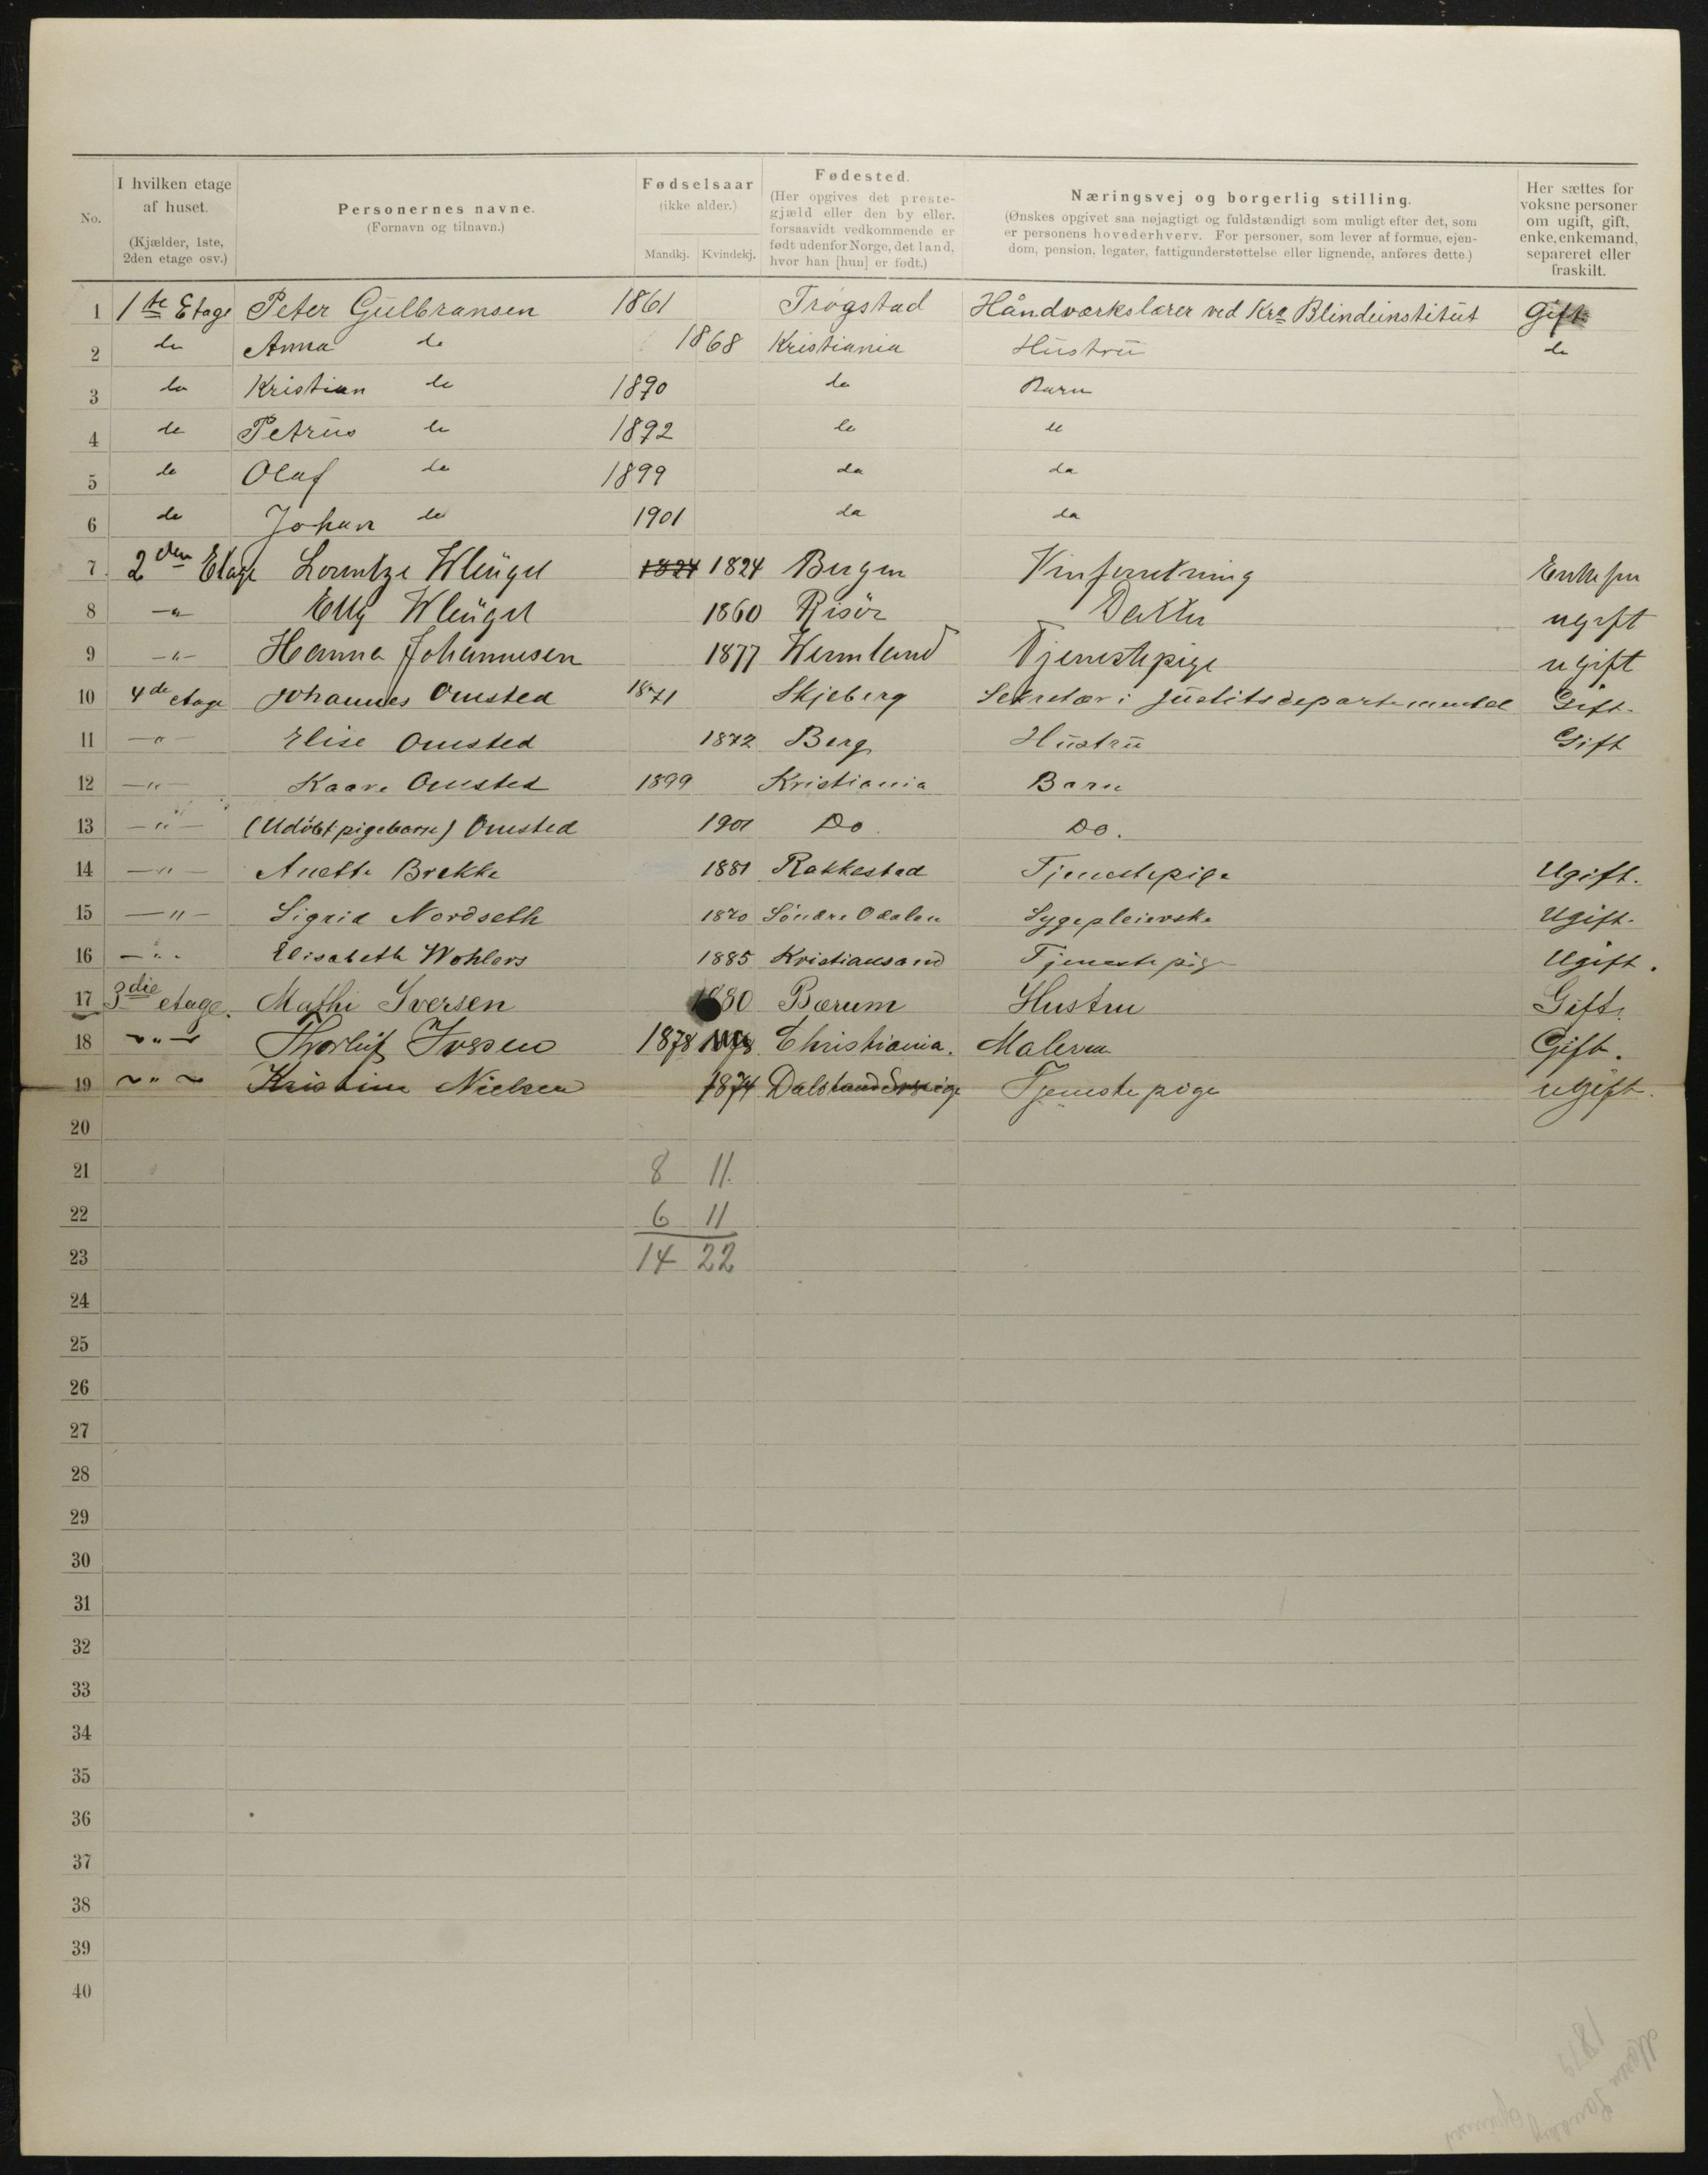 No.
I hvilken etage af huset. (Kjælder, 1ste, 2den etage osv.)
Personernes navne. (Fornavn og tilnavn.)
Fødselsaar (ikke alder.)
Mandkj. Kvindekj.
Fødested. (Her opgives det prestegjæld eller den by eller, forsaavidt vedkommende er født udenfor Norge, det land, hvor han [hun] er født.)
Næringsvej og borgerlig stilling. (Ønskes opgivet saa nøjagtigt og fuldstændigt som muligt efter det, som er personens hovederhverv. For personer, som lever af formue, ejendom, pension, legater, fattigunderstøttelse eller lignende, anføres dette.)
Her sættes for voksne personer om ugift, gift, enke, enkemand, separeret eller fraskilt.
1 1ste Etage Peter Gulbransen 1861 Trøgstad Håndværkslærer ved Kra Blindeinstitut Gift
2 do Anna do 1868 Kristiania Hustru do
3 do Kristian do 1890 do Barn
4 do Petrus do 1892 do do
5 do Olaf do 1899 do do
6 do Johan do 1901 do do
7 2den Etage Lorentze Wleügel 1824 1824 Bergen Vinforretning Enkefru
8 -"- Elly Wleügel 1860 Risör Datter ugift
9 -"- Hanna Johannesen 1877 Wermland Tjenestepige ugift
10 4de etage Johannes Omsted 1871 Skjeberg Sekretær i Justitsdepartementet Gift.
11 -"- Elise Omsted 1872 Berg Hustru Gift
12 -"- Kaare Omsted 1899 Kristiania Barn
13 -"- (Udöbt pigebarn) Omsted 1901 Do Do.
14 -"- Anette Brekke 1881 Rakkestad Tjenestepige Ugift.
15 -"- Sigrid Nordseth 1870 Söndre Odalen Sygepleierske Ugift.
16 -"- Elisabeth Wohlers 1885 Kristiansand Tjenestepige Ugift.
17 3die etage. Mathi Iversen 1880 Bærum Hustru Gift.
18 ~"~ Thorleif Iversen 1878 Christiania. Maler Gift.
19 ~"~ Kristine Nielsen 1874 Dalsland Sverige Tjenestepige ugift.
20
21 8 11.
22 6 11
23 14 22
24
25
26
27
28
29
30
31
32
33
34
35
36
37
38
39
40